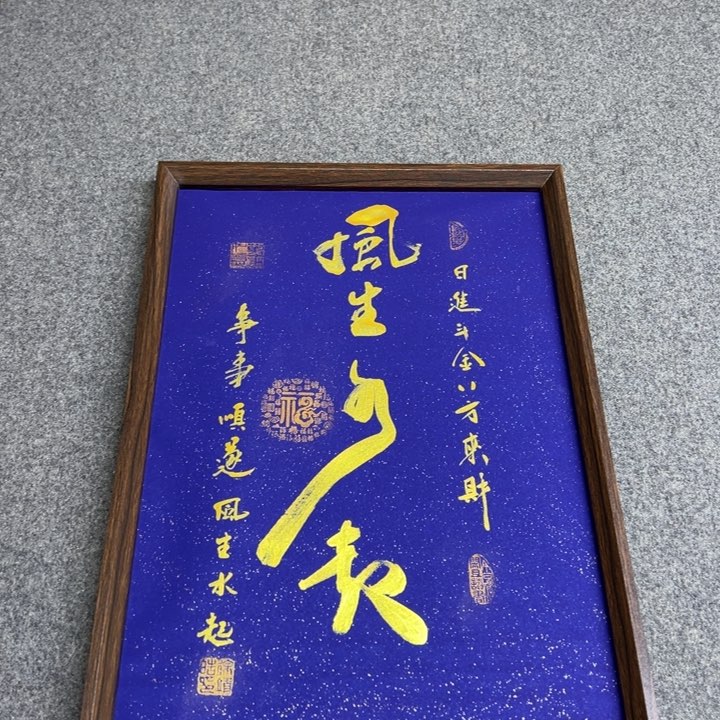 日進斗金八方來財
風生水起
事事順遂風生水起
福